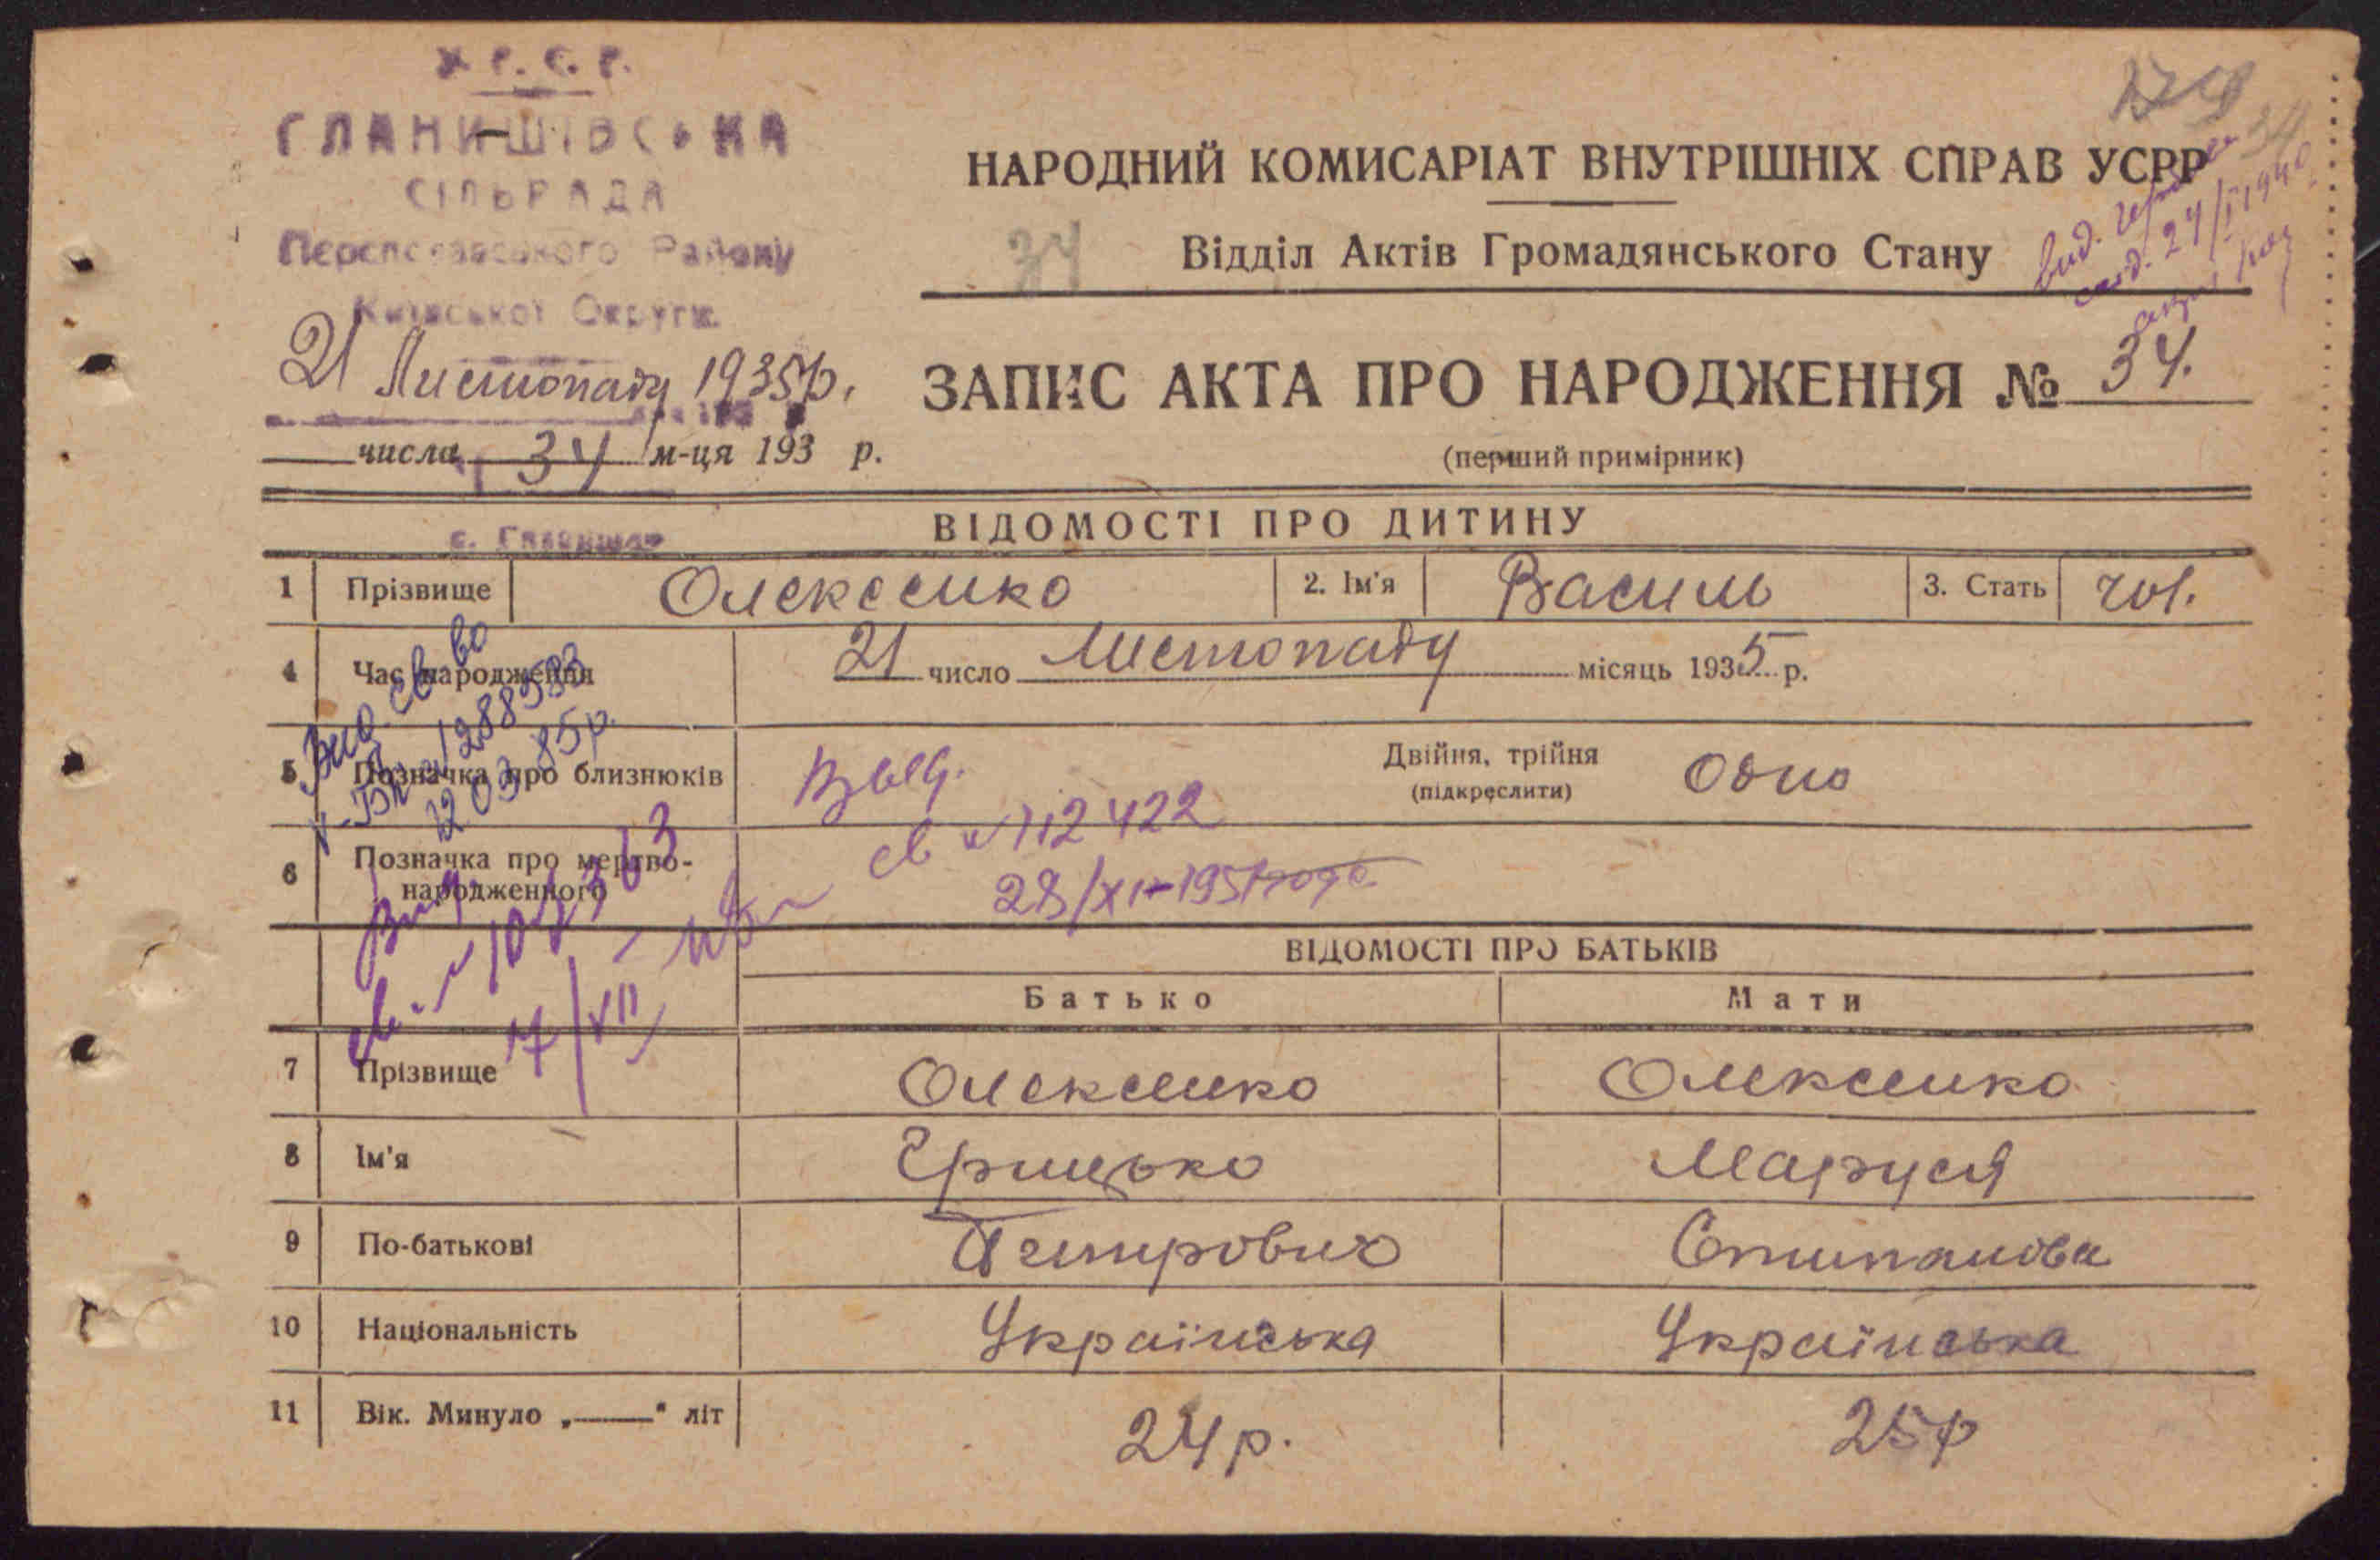 У. С. Р. Р.
ГЛАНИШІВСЬКА
СІЛЬРАДА
Переяславського Району
Київської Округи
21 Листопаду 1935 р.
числа 34 м-ця 193 р.
с. Гланишів
34
НАРОДНИЙ КОМИСАРІАТ ВНУТРІШНІХ СПРАВ УСРР
34
Відділ Актів Громадянського Стану
вид.
свід. 24/I 1940
ЗАПИС АКТА ПРО НАРОДЖЕННЯ № 34.
(перший примірник)
ВІДОМОСТІ ПРО ДИТИНУ
1 Прізвище Олексеенко 2. Ім'я Василь 3. Стать чол.
4 Час народження 21 число Листопаду місяць 1935 р.
5 Позначка про близнюків Двійня, трійня (підкреслити) Одно
Выд.
св № 112422
28/XII-1951 года
6 Позначка про мертвонародженного
св-во
1288533
12 03 85р.
Выд.
св. №
17/VII
ВІДОМОСТІ ПРО БАТЬКІВ
Батько Мати
7 Прізвище Олексеенко Олексеенко
8 Ім'я Грицько Маруся
9 По-батькові Петрович Стипанова
10 Національність Українська Українська
11 Вік. Минуло „——“ літ 24 р. 25 р